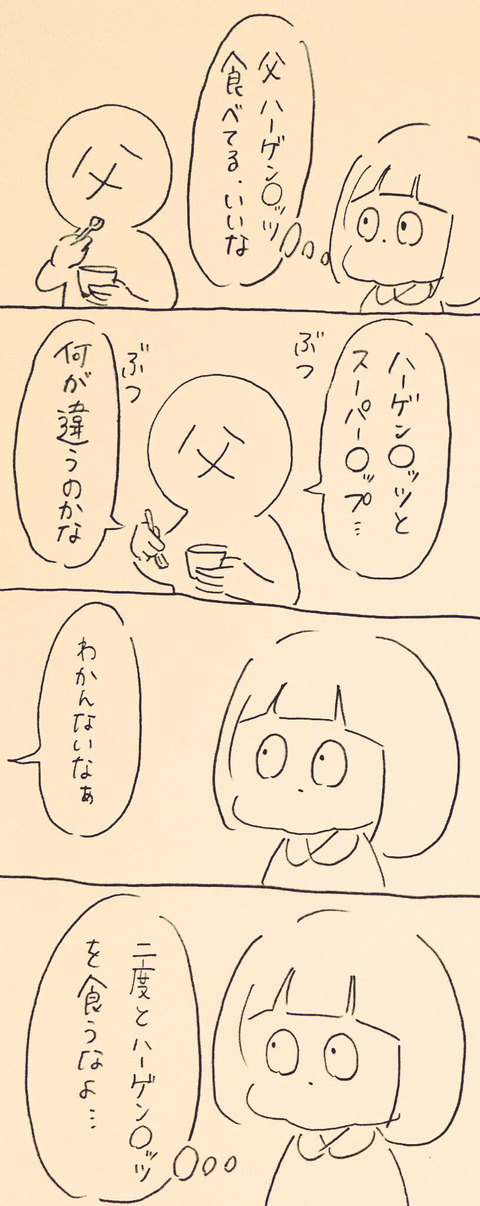 父 ハーゲン〇ッツ
食べてる、いいな
父
ハーゲン〇ッツと
スーパー〇ップ…
ぶつ
父
ぶつ
何が違うのかな
わかんないなぁ
二度とハーゲン〇ッツ
を食うなよ…